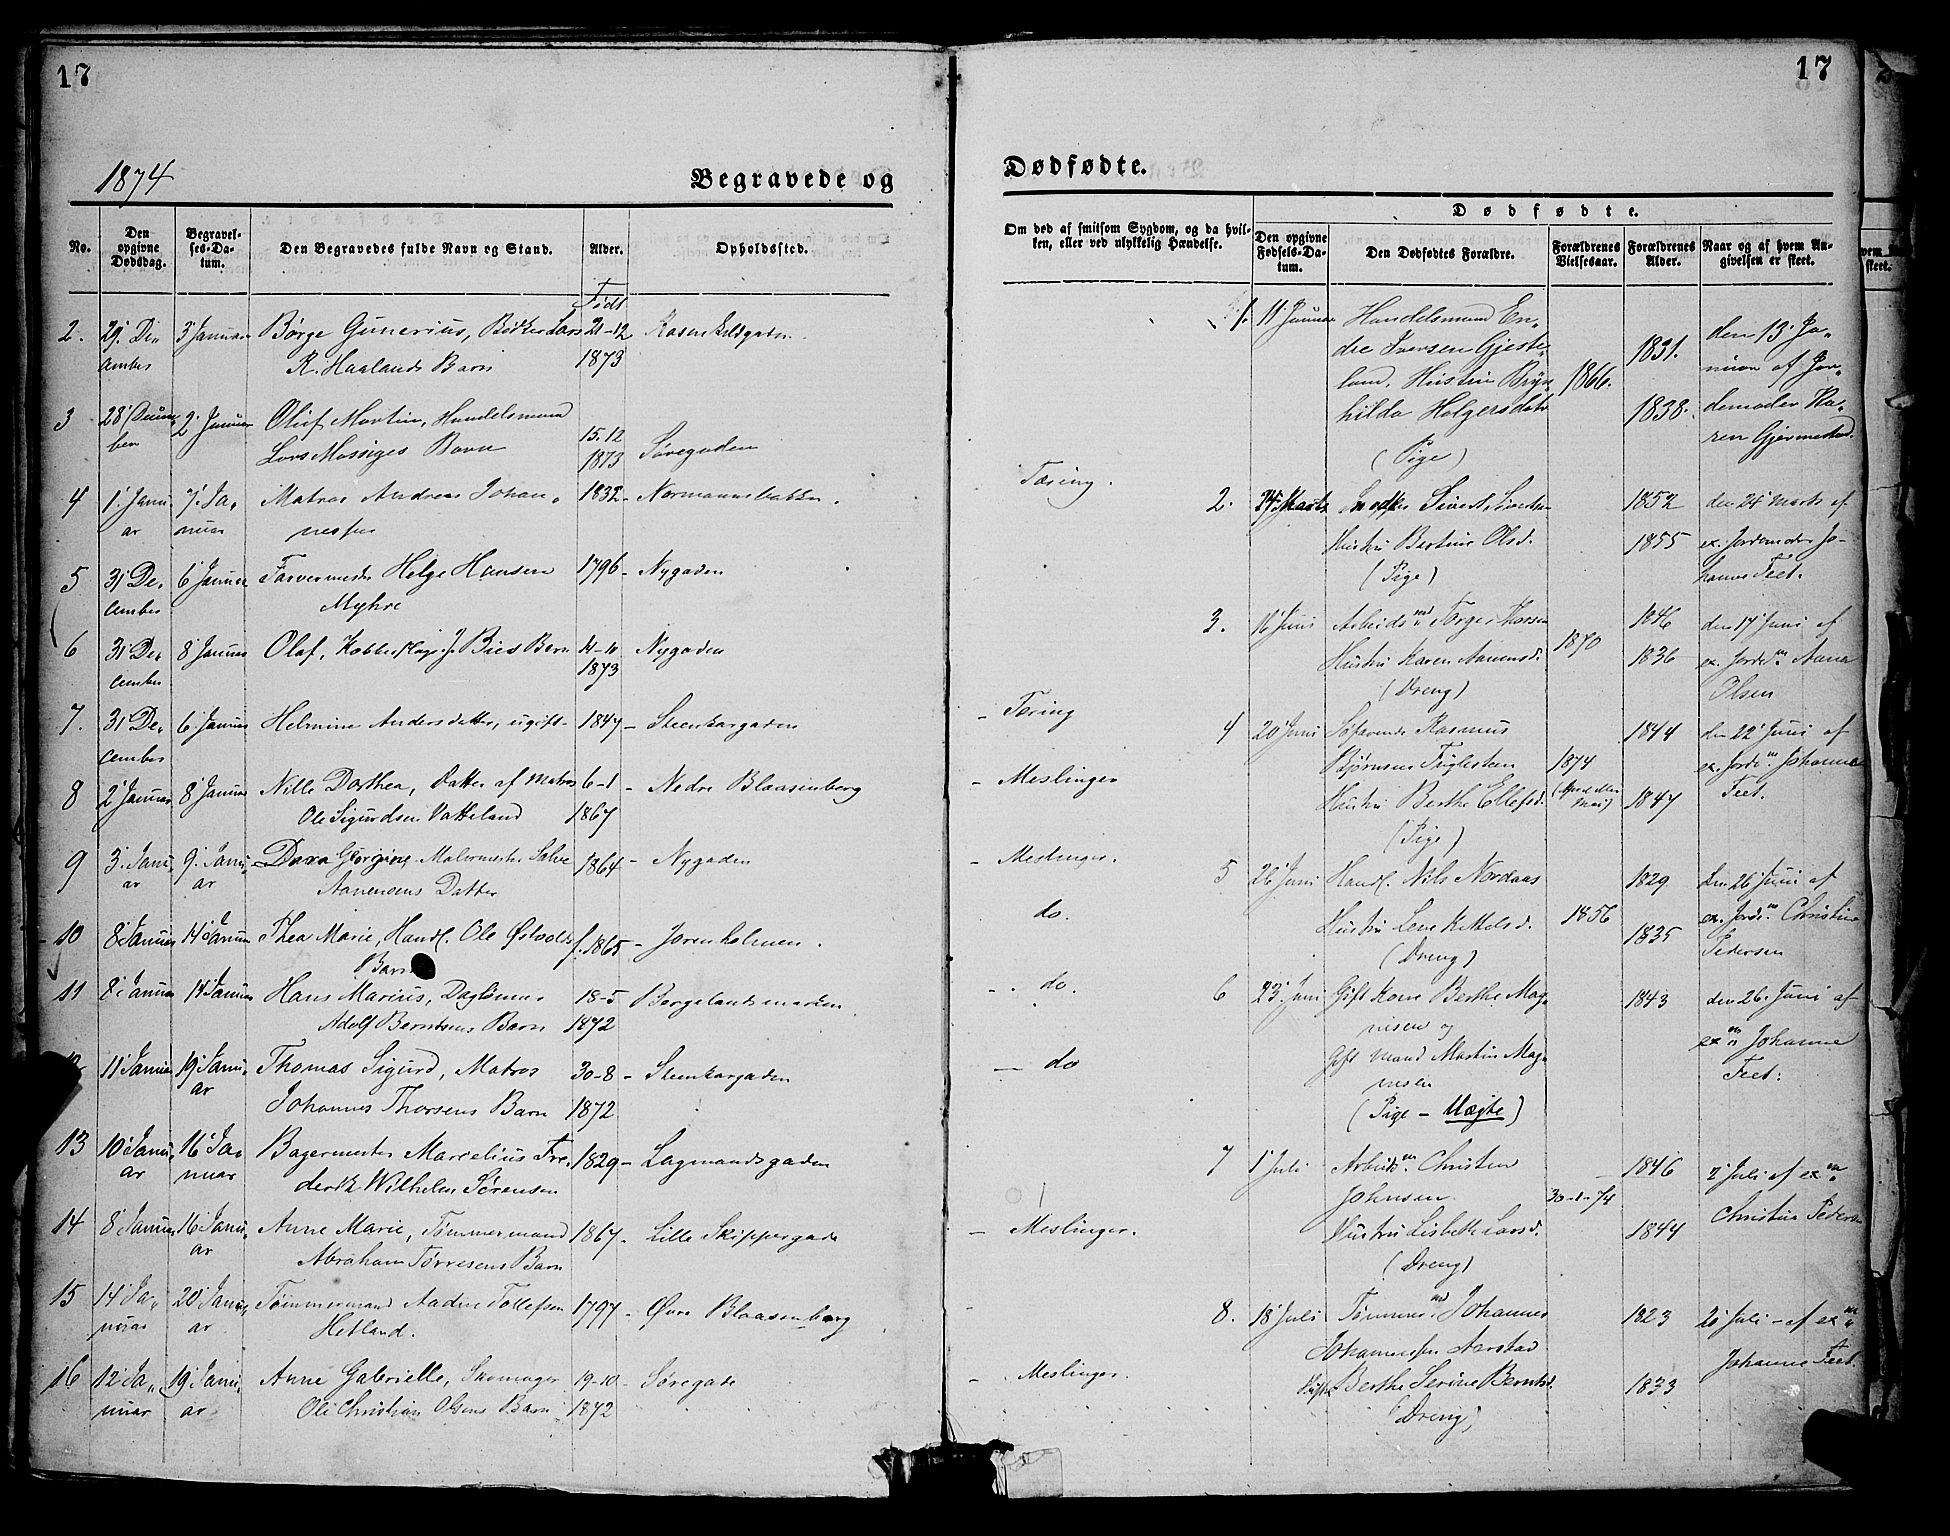 17
17
1874
Begravede og
Dødfødte.
No.
Den opgivne Dødsdag.
Begravelses-Datum.
Den Begravedes fulde Navn og Stand.
Alder.
Opholdssted.
Født
2. 29' De- 3' Januar Børge Gunerius, Bødker Lars 21-12
cember R. Haalands Barn 1873
3 28' Decem- 2' Januar Oluf Martin, Handelsmand 15.12
ber Lars Barn 1873 Søregaden
4 1' Janu- 7' Ja- Matros Andreas Johan- 1832 - Normannsbakken.
ar nuar nessen
5 31' De- 6' Januar Farvermester Helge Hansen 1796 - Nygaden
cember Myhre
6 31' De- 8' Januar Olaf, J. Bies Barn Nygaden
cember 1873
7. 31' De- 6' Januar Helmine Andersdatter, ugift - 1847 - Steenkargaden
cember
8 2' Januar 8' Januar Nille Dorthea, Datter af Matros 6-1 - Nedre Blaasenborg
Ole Sigurdsen Vatteland 1867
9 3' Janu- 9' Janu- Dora Georgine, Malermester Salve 1864 - Nygaden
ar ar Aanensens Datter
10 8' Januar 14' Januar Thea Marie, Handl. Ole f. 1865 - Jorenholmen.
Barn
11 8' Januar 14' Januar Hans Marius, Daglønner 18-5 - Bergelandsmarken
Adolf Berntsens Barn 1872
11' Januar 19' Janu- Thomas Sigurd, Matros 30-8 - Steenkargaden
ar Johannes Thorsens Barn 1872
13 10' Janu- 16' Ja- Bagermester Marcelius Fre- 1829 - Lagmandsgaden
ar nuar derik Wilhelm Sørensen
14 8' Januar 16' Janu- Anne Marie, Tømmermand 1867 - Lille Skippergade
ar Abraham Tørresens Barn
15 14' Ja- 20' Janu- Tømmermand Tollefsen 1797 - Øvre Blaasenborg
nuar ar Hetland.
16 12' Ja- 19' Janu- Anne Gabrielle, Skomager 19-10 - Søregade
nuar ar Ole Christian Olsens Barn 1872
Om død af smitsom Sygdom, og da hvil-
ken, eller ved ulykkelig Hændelse.
Dødfødte.
Den opgivne Fødsels-Datum.
Den Dødfødtes Forældre.
Forældrenes Vielsesaar.
Forældrenes Alder.
Naar og af hvem Angivelsen er skeet.
Tæring.
- Tæring
- Meslinger
- Meslinger.
do.
- do.
- do
- Meslinger.
-
- Meslinger.
1. 11' Januar Handelsmand En-
dre Iversen Gjeste- 1831. den 13' Ja-
land, Hustru Bryn- 1866. nuar af Jor-
hilda Holgersdatr 1838. demoder Ka-
(Pige) ren
2. 24' Marts Snedker Sivert Sivertsen 1852 den 24' Marts af
Hustru Bertine Olsd. 1855 ex. Jordemoder Jo-
(Pige) hanne Feet.
3. 16' Juni Arbeidsmd Torger 1846 den 17' Juni af
Hustru Karen Aanensd. 1870 1836 ex. Jordm. Anna
(Dreng) Olsen
4 20' Juni Søfarende Rasmus 1844 den 22' Juni af
Bjørnsen Fuglestein 1874 ex. Jordm. Johanne
Hustru Berthe Ellefsd. (April eller Mai) 1847 Feet.
(Pige)
5 26' Juni Handl. Nils Nordaas 1829 den 26' Juni af
Hustru Lene Kittelsd. 1856 ex. Jordm. Christine
(Dreng) 1835 Pedersen
6 23' Juni Gift Kone Berthe Mag- 1843 den 26' Juni af
nisen og exm. Johanne
Gift Mand Martin Mag- Feet.
nisen
(Pige - Uægte)
7 1' Juli Arbeidsm. Christen 1846 2' Juli af exm.
Johnsen 30-1-74 Christine Pedersen
Hustru Lisbeth Larsd. 1844
(Dreng)
8. 18' Juli Tømmermd. Johannes 1823 20' Juli - af exm.
Johannessen Aarstad Johanne Feet.
Hustru Berthe Serine Berntsd. 1833
(Dreng)